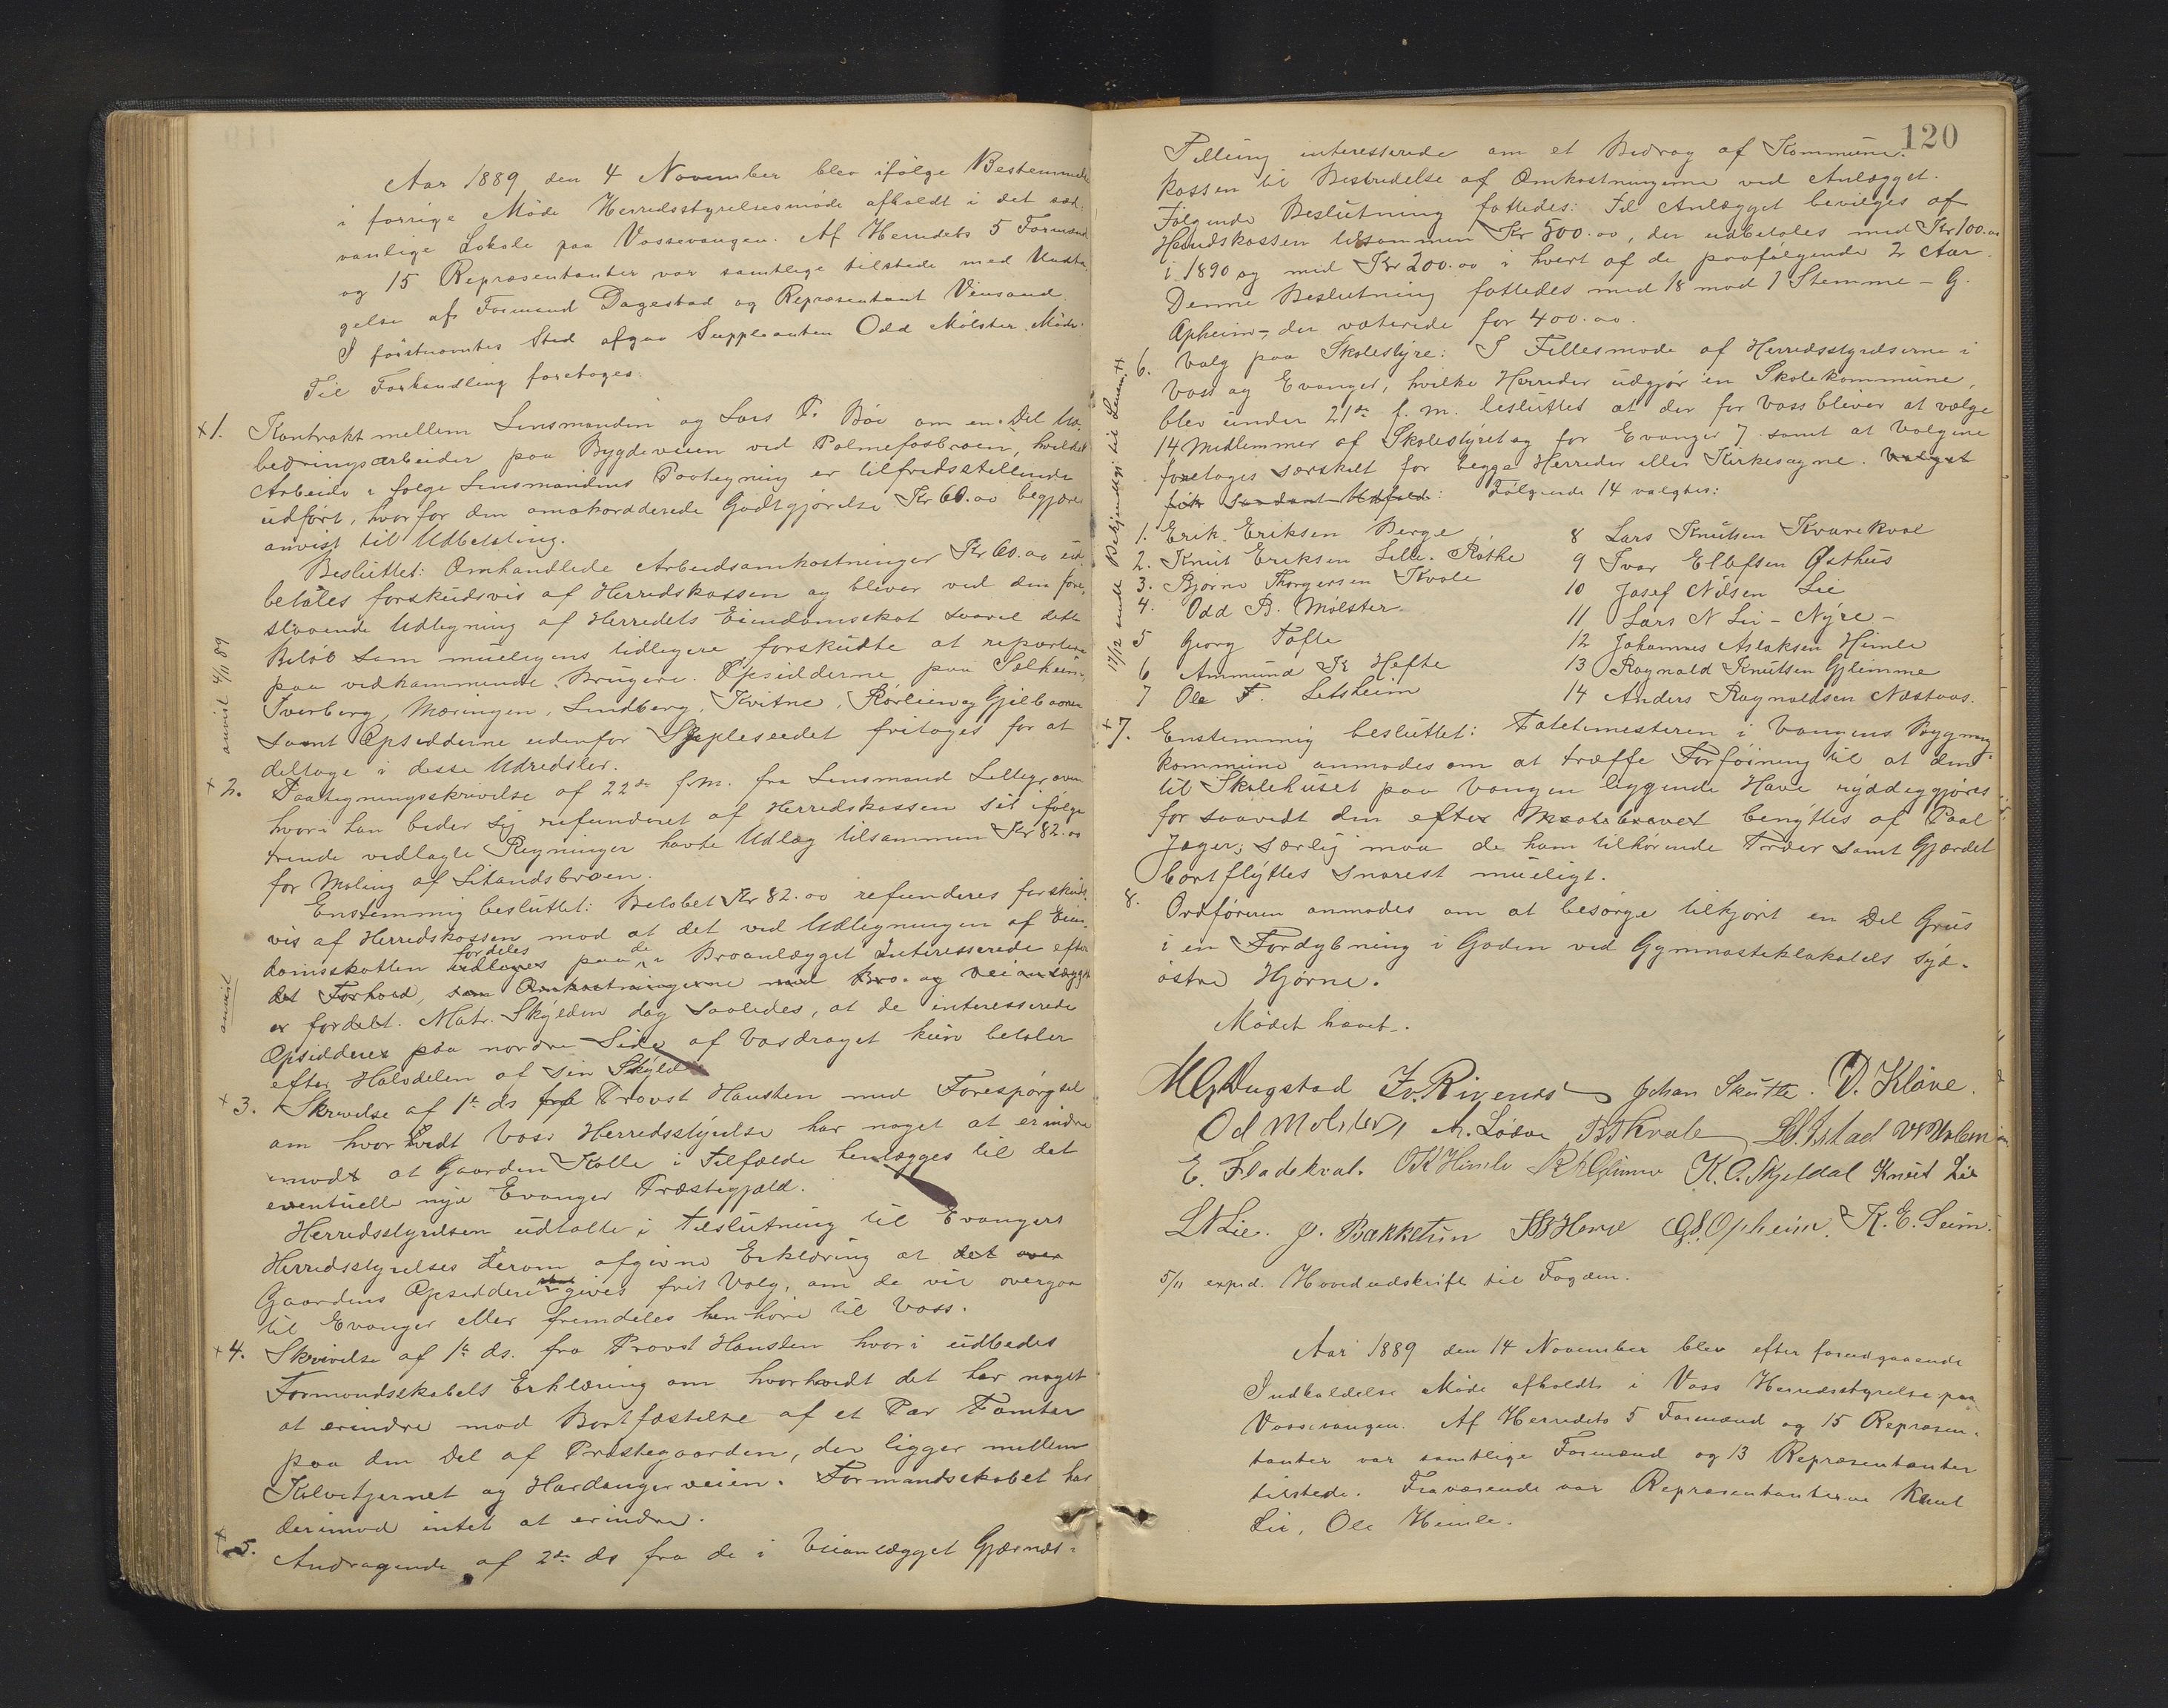 Aar 1889 den 4 November blev ifölge Bestemmelse
i forrige Möde Herredsstyrelsesmöde afholdt i det sæd-
vanlige Lokale paa Vossevangen. Af Herredets 5 Formænd
og 15 Repræsentanter var samtlige tilstede med Undta-
gelse af Formand Dagestad og Repræsentant Vinsand.
I förstnævntes Sted afgav Suppleanten Odd Mölster Möde.
Til Forhandling foretoges:
x 1. Kontrakt mellem Lensmanden og Lars T. Böe om en Del Ud-
bedringsarbeider paa Bygdeveien ved Palmefosbroen, hvilket
Arbeide i følge Lensmandens Paategning er tilfredsstillende
udfört, hvorfor den omakorderede Godtgjörelse Kr 60.00 begjæres
anvist til Udbetaling.
Besluttet: Omhandlede Arbeidsomkostninger Kr 60.00 ud-
betales forskudsvis af Herredskassen og bliver ved den fore-
staaende Udligning af Herredets Eiendomsskat saavel dette
Belöb som mueligens tidligere forskudte at repartere
paa vedkommende Brugere. Opsidderne paa Selheim,
Tverberg, Mæringen, Lindberg, Kvitne, Rörlien og Gjelbaaren
samt Opsidderne udenfor Skjepleseidet fritages for at
deltage i disse Udredsler.
anvist 4/11 89
x 2. Paategningsskrivelse af 22de f.M. fra Lensmand Lillegraven
hvori han beder sig refunderet af Herredskassen sit ifölge
trende vedlagte Regninger havte Udlæg tilsammen Kr 82.00
for Maling af Litlandsbroen.
Enstemmig besluttet: Belöbet Kr 82.00 refunderes forskuds-
vis af Herredskassen mod at det ved Udligningen af Eien-
domsskatten udlignes fordeles paa de i Broanlægget Interesserede efter
det Forhold, som Omkostningerne med Bro- og Veianlægget
er fordelt. Matr. Skylden dog saaledes, at de interesserede
Opsiddere paa nordre Side af Vasdraget kun betaler
efter Halvdelen af sin Skyld.
anvist
x 3. Skrivelse af 1ste ds fra Provst Hansten med Forespørgsel
om hvorvidt Voss Herredsstyrelse har noget at erindre
imod at Gaarden Kolle i Tilfælde henlægges til det
eventuelle nye Evanger Præstegjæld.
Herredsstyrelsen udtalte i Tilslutning til Evangers
Herredsstyrelses derom afgivne Erklæring at det over
Gaardens Opsiddere gives frit Valg, om de vil overgaa
til Evanger eller fremdeles henhöre til Voss.
x 4. Skrivelse af 1ste ds. fra Provst Hansten hvori udbedes
Formandskabets Erklæring om hvorvidt det har noget
at erindre mod Bortfæstelse af et Par Tomter
paa den Del af Præstegaarden, der ligger mellem
Kalvetjernet og Hardangerveien. Formandsskabet har
derimod intet at erindre.
x 5. Andragende af 2den ds fra de i Veianlægget Gjærnæs-
120
Tillung interesserede om et Bidrag af Kommune-
kassen til Bestridelse af Omkostningerne ved Anlægget.
Fölgende Beslutning fattedes: Til Anlægget bevilges af
Herredskassen tilsammen Kr 500.00, der udbetales med Kr 100.00
i 1890 og med Kr 200.00 i hvert af de paafölgende 2 Aar.
Denne Beslutning fattedes med 18 mod 1 Stemme - G.
Opheim -, der voterede for 400.00.
6. Valg paa Skolestyre: I Fællesmøde af Herredsstyrelserne i
Voss og Evanger, hvilke Herreder udgjör en Skolekommune,
blev under 21de f.m. besluttet at der for Voss bliver at vælge
14 Medlemmer af Skolestyret og for Evanger 7 samt at Valgene
foretages særskilt for begge Herreder eller Kirkesogne. Valget
fik saadant Udfald: Fölgende 14 valgtes:
17/12 sendt Bekjendtgj. til Lensm. x
1. Erik Eriksen Berge
2. Knut Eriksen Lille-Röthe
3. Bjorne Thorgersen Kvale
4. Odd B. Mölster
5 Georg Tøfte
6 Ammund K Hefte
7 Ole F. Litsheim
8 Lars Knutsen Kvarekval
9 Ivar Ellefsen Østhus
10 Josef Nilsen Lie
11 Lars N Lie - Nyre -
12 Johannes Aslaksen Himle
13 Ragnald Knutsen Glimme
14 Anders Ragnaldsen Næstaas.
x 7. Enstemmig besluttet: Politimesteren i Vangens Bygnings-
kommune anmodes om at træffe Forföining til at den
til Skolehuset paa Vangen liggende Have ryddiggjøres
for saavidt den efter Maatebrevet benyttes af Paal
Jæger; særlig maa de ham tilhörende Træer samt Gjærdet
bortflyttes snarest mueligt.
8. Ordföreren anmodes om at besörge tilkjørt en Del Grus
i en Fordybning i Gaden ved Gymnastiklokalets syd-
östre Hjörne.
Mödet hævet.
MG Dugstad Iv. Rivenes Johan Skutle. D. Klöve.
Od Molster, A. Löðve B Th Kvale LO Istad
E. Fladekval. OK Himle RK Glimme K. O. Skjeldal Knut Lie
LN Lie. J. Bakketun GS. Opheim. K. E. Seim.
5/11 exped. Hovedudskrift til Fogden.
Aar 1889 den 14 November blev efter forudgaaende
Indkaldelse Möde afholdt i Voss Herredsstyrelse paa
Vossevangen. Af Herredets 5 Formænd og 15 Repræsen-
tanter var samtlige Formænd og 13 Repræsentanter
tilstede. Fraværende var Repræsentanterne Knut
Lie, Ole Himle.